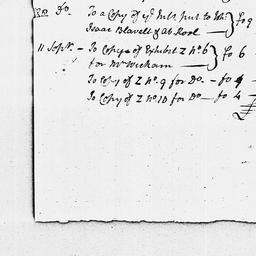 Do. To a Copy of ye Ints put to Wm } fo 9
Isaac Blavell & Ab Rool
11 Sepr. - To Copy of Exhibit Z No. 6 } fo 6
for Mr Wickham
To Copy of Z No. 9 for Do. - fo 4 -
To Copy of Z No. 10 for Do - fo 4 -